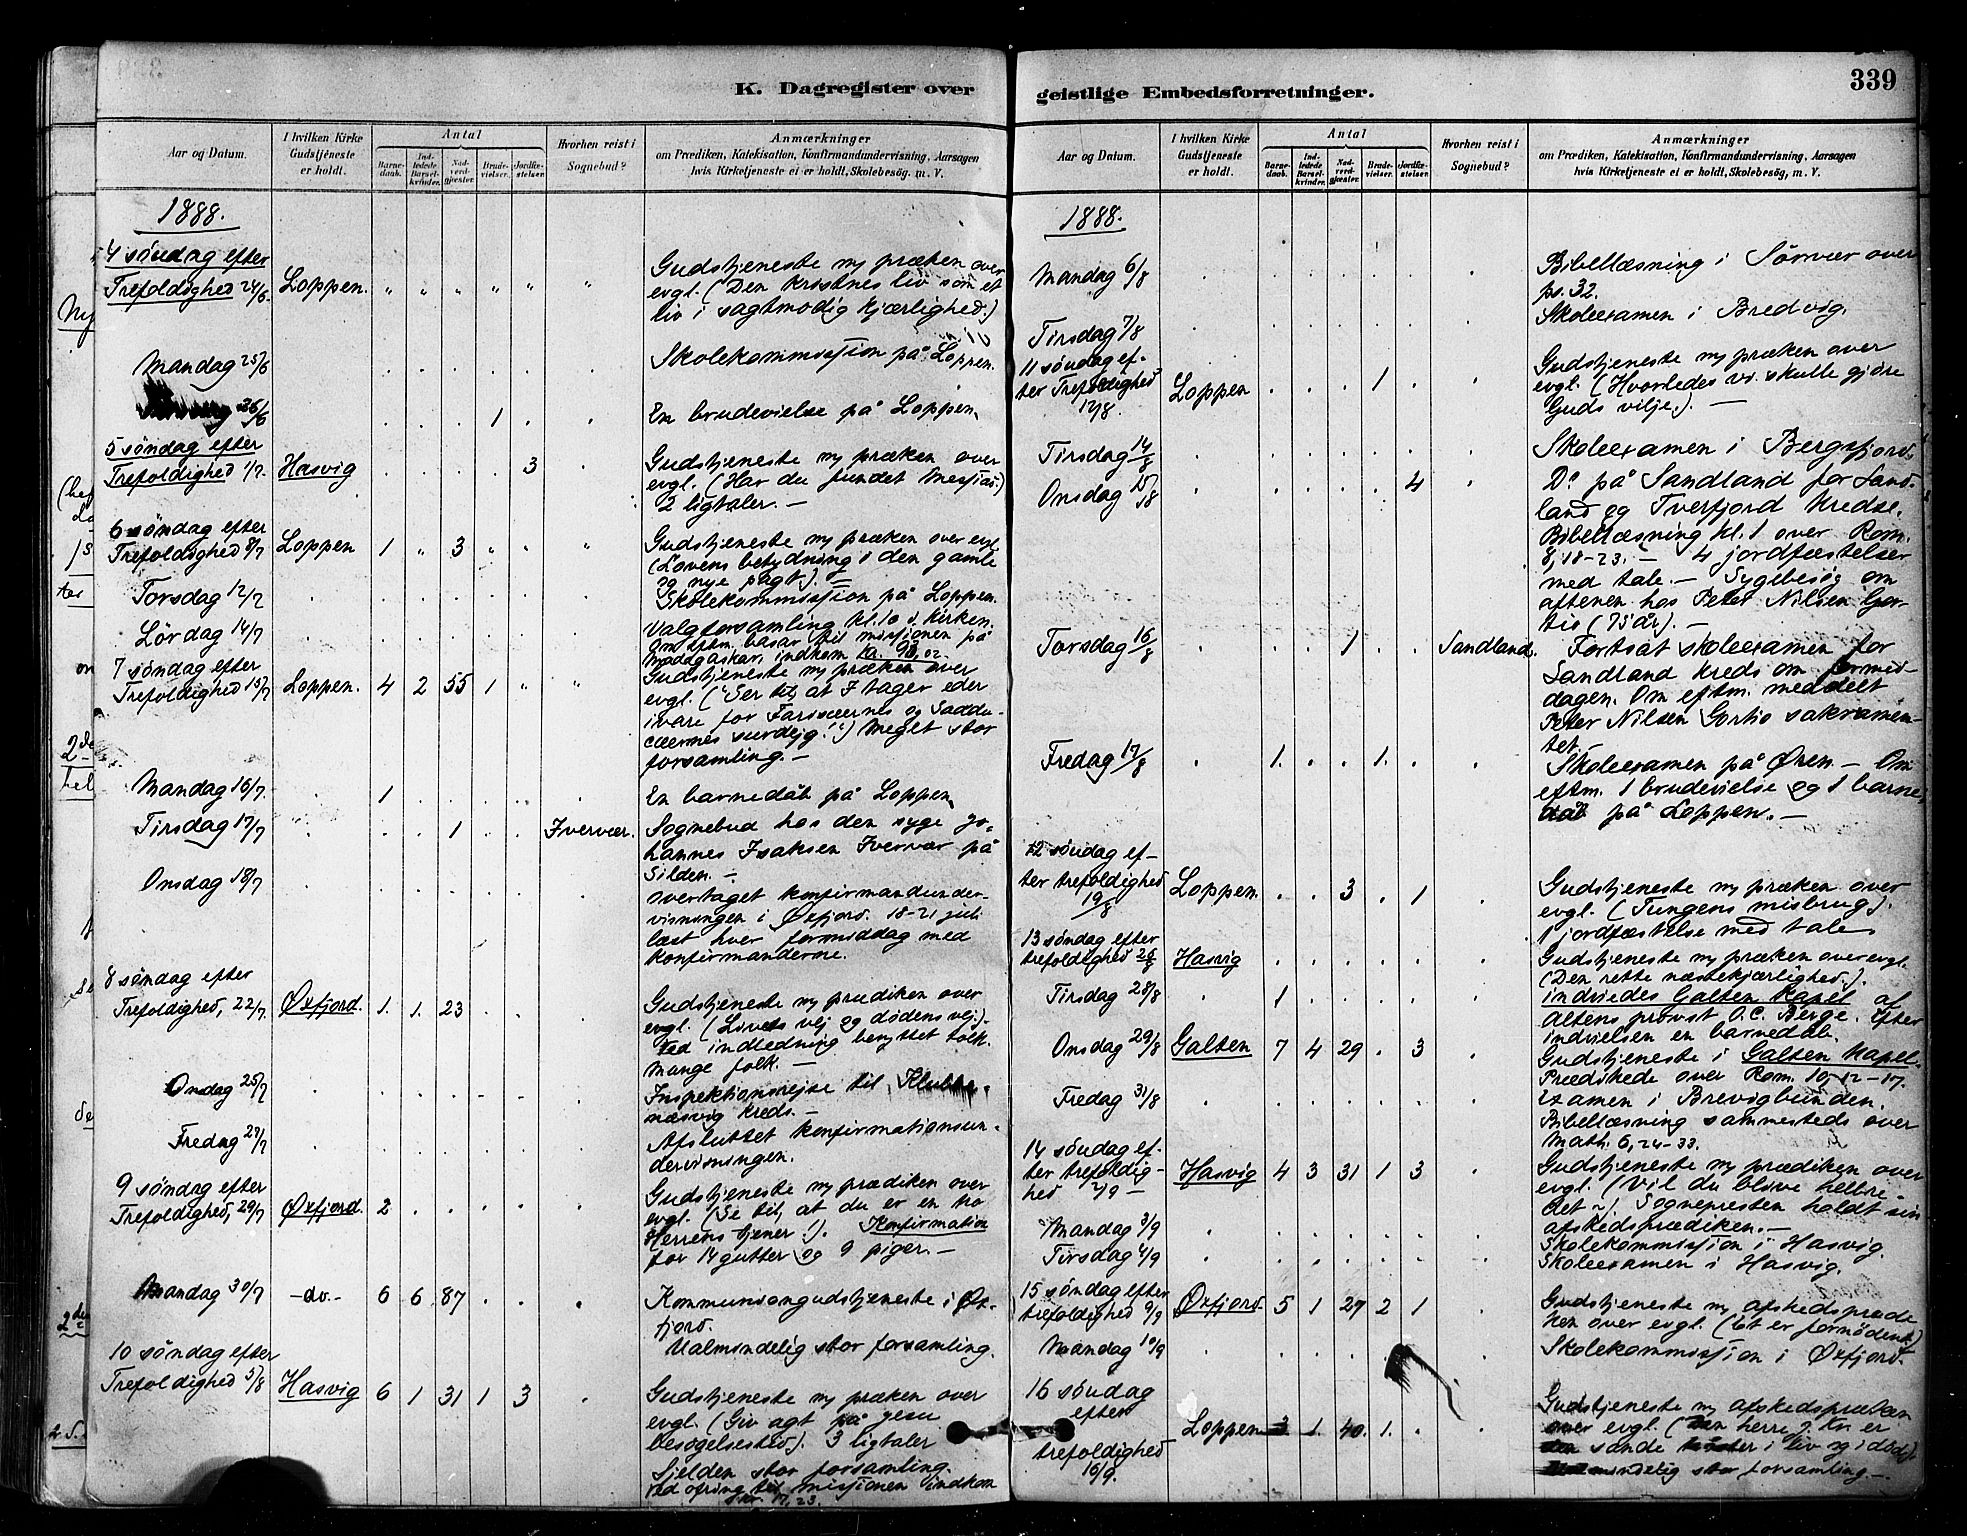 K. Dagregister over
Aar og Datum. I hvilken Kirke Gudstjeneste er holdt. Antal Barnedaab. Indledede Barselkvinder. Nadverdgjæster. Brudevielser. Jordfæstelser. Hvorhen reist i Sognebud? Anmærkninger om Prædiken, Katekisation, Konfirmandundervisning, Aarsagen hvis Kirketjeneste ei er holdt, Skolebesøg. m. V.
1888.
4 søndag efter
Trefoldighed 24/6. Loppen. " " " " " " Gudstjeneste m/ præken over
evgl. (Den kristnes liv som et
liv i sagtmodig kjærlighed.)
Mandag 25/6 Skolekommissjon på Loppen.
26/6 1 En brudevielse på Loppen.
5 søndag efter
Trefoldighed 1/7. Hasvig 3 Gudstjeneste m/ præken over
evgl. (Har du fundet Messias.)
2 ligtaler. —
6 søndag efter
Trefoldighed 8/7 Loppen 1 " 3 " " " Gudstjeneste m/ præken over evgl
(Lovens betydning i den gamle
og nye pagt.) —
Torsdag 12/7 Skolekommissjon på Loppen.
Lørdag 14/7 Valgforsamling kl. 10 i kirken.
om eftm. basar til missionen på
Madagaskar, indkom kr. 93,02.
7 søndag efter
Trefoldighed 15/7 Loppen. 4 2 55 1 " " Gudstjeneste m/ præken over
evgl. ("Ser til, at I tager eder
ivare for Farisæernes og Saddu-
cæernes surdejg!") Meget stor
forsamling. —
Mandag 16/7. 1 En barnedåb på Loppen.
Tirsdag 17/7 1 Ivervær. Sognebud hos den syge Jo-
hannes Isaksen Ivervær på
Silden. —
Onsdag 18/7 overtaget konfirmandunder-
visningen i Øxfjord. 18-21 juli
læst hver formiddag med
konfirmanderne.
8 søndag efter
Trefoldighed, 22/7. Øxfjord. 1. 1. 23 Gudstjeneste m/ prædiken over
evgl. (Livets vej og dødens vej.).
Ved indledning benyttet tolk.
Mange folk. —
Onsdag 25/7 Inspektionsrejse til Klubbe-
næsvig kreds. —
Fredag 27/7 Afsluttet konfirmationsun-
dervisningen.
9 søndag efter
Trefoldighed, 29/7 Øxfjord. 2 Gudstjeneste m/ prædiken over
evgl. (Se til, at du er en tro
Herrens tjener!). Konfirmation
for 14 gutter og 9 piger. —
Mandag 30/7 -do.- 6 6 87 Kommunsongudstjeneste i Øx-
fjord.
Ualmindelig stor forsamling.
10 søndag efter
Trefoldighed 5/8 Hasvig 6 1 31 1 3 Gudstjeneste m/ præken over
evgl. (Giv agt på Jesu
besøgelsestid). 3 ligtaler
Sjelden stor forsamling.
Ved ofring til missjonen indkom
kr. 17,23.
339
geistlige Embedsforretninger.
Aar og Datum. I hvilken Kirke Gudstjeneste er holdt. Antal Barnedaab. Indledede Barselkvinder. Nadverdgjæster. Brudevielser. Jordfæstelser. Hvorhen reist i Sognebud? Anmærkninger om Prædiken, Katekisation, Konfirmandundervisning, Aarsagen hvis Kirketjeneste ei er holdt, Skolebesøg, m. V.
1888.
Mandag 6/8 Bibellæsning i Sørvær over
ps. 32.
Tirsdag 7/8 Skoleexamen i Bredvig.
11 søndag ef-
ter Trefoldighed
12/8. Loppen 1 Gudstjeneste m/ præken over
evgl. (Hvorledes vi skulle gjøre
Guds vilje.). —
Tirsdag 14/8 Skoleexamen i Bergsfjord.
Onsdag 15/8 4 Do på Sandland for Sand-
land og Tverfjord kredse.
Bibellæsning kl. 1 over Rom.
8, 18-23. — 4 jordfæstelser
med tale. — Sygebesøg om
aftenen hos Peter Nilsen Gor-
tio (75 år). —
Torsdag 16/8 1 Sandland. Fortsat skoleexamen for
Sandland kreds om formid-
dagen. Om eftm. meddelt
Peter Nilsen Gortio sakramen-
tet. —
Fredag 17/8 1. 1. Skoleexamen på Øren. — Om
eftm. 1 brudevielse og 1 barne-
dåb på Loppen. —
12 søndag ef-
ter trefoldighed
19/8 Loppen. 3 1 Gudstjeneste m/ præken over
evgl. (Tungens misbrug).
1 jordfæstelse med tale.
13 søndag efter
trefoldighed 26/8 Hasvig Gudstjeneste m/ præken over evgl.
(Den rette næstekjærlighed.).
Tirsdag 28/8 1 indviedes Galten Kapel af
Altens provst O.C. Berge. Efter
indvielsen en barnedåb.
Onsdag 29/8 Galten 7 4 29 3 Gudstjeneste i Galten Kapel.
Prædikede over Rom. 10, 12-17.
Fredag 31/8 Examen i Brevigbunden.
Bibellæsning sammesteds over
Math. 6, 24-33.
14 søndag ef-
ter trefoldig-
hed 2/9 — Hasvig 4 3 31 1 3 Gudstjeneste m/ prædiken over
evgl. (Vil du blive helbre-
det?). Sognepresten holdt sin
afskedsprædiken. —
Mandag 3/9 Skolekommissjon i Hasvig.
Tirsdag 4/9 Skoleexamen i Hasvig.
15 søndag efter
trefoldighed 9/9 Øxfjord. 5 1 27 2 1 Gudstjeneste m/ afskedspræde
ken over evgl. (Et er fornødent)
Mandag 10/9 Skolekommissjon i Øxfjord.
16 søndag
efter
trefoldighed
16/9. Loppen 3 1. 40. 1. Gudstjeneste m/ afskedspræken
over evgl. (herre J. Kr. er
sande i liv og i død)
stor forsamling —.